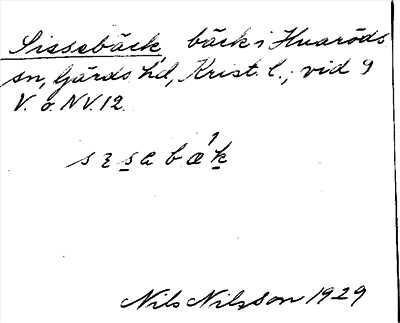 Sissebäck, bäck i Huaröds
sn, Gärds hd, Krist. l.; vid 9
V. o. NV. 12.
Nils Nilsson 1929